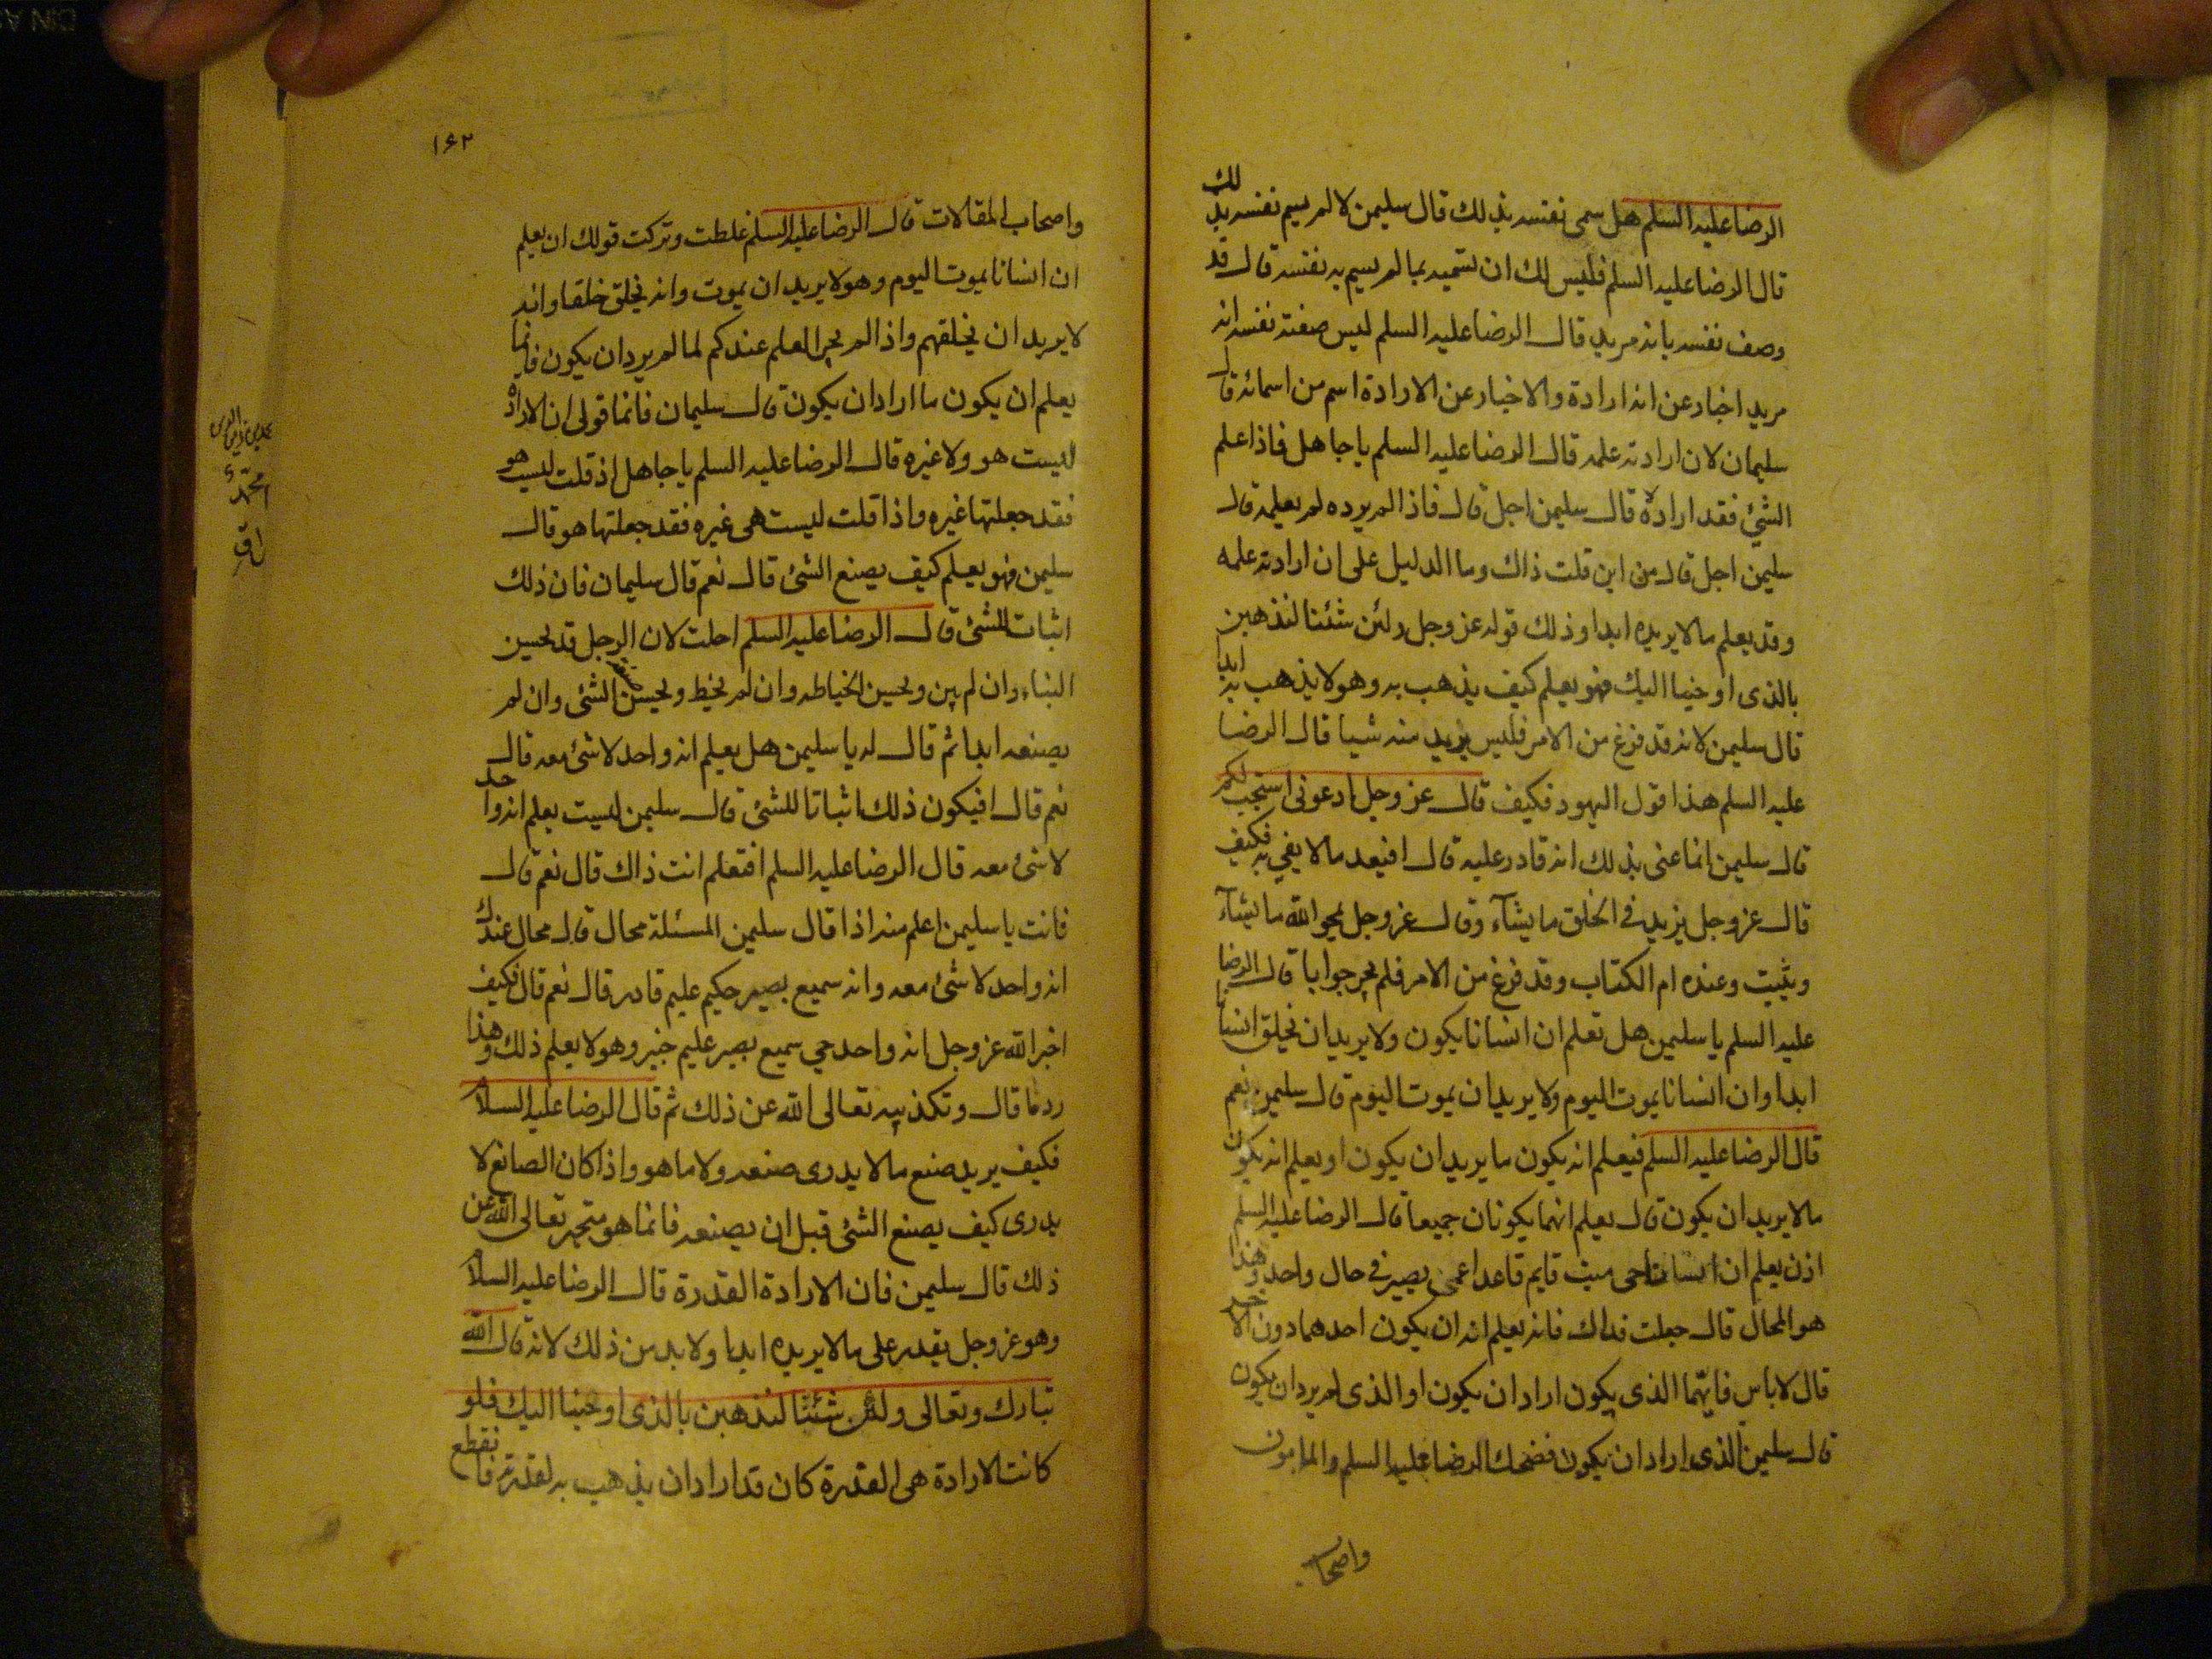 الرضا عليه السلم هل سمى نفسه بذلك قال سليمن لا لم يسم نفسه بذلك
قال الرضا عليه السلم فليس لك ان تسميه بما لم يسم به نفسه قال قد
وصف نفسه بانه مريد قال الرضا عليه السلم ليس صفته نفسه انه
مريد اخبار عن انه ارادة والاخبار عن الارادة اسم من اسمائه قال
سليمان لان ارادته علمه قال الرضا عليه السلم يا جاهل فاذا علم
الشئ فقد اراده قال سليمن اجل قال فاذا لم يرده لم يعلمه قال
سليمن اجل قال من اين قلت ذاك وما الدليل على ان ارادته علمه
وقد يعلم ما لا يريده ابدا وذلك قوله عز وجل ولئن شئنا لنذهبن
بالذى اوحينا اليك فهو يعلم كيف يذهب به وهو لا يذهب به ابدا
قال سليمن لانه قد فرغ من الامر فليس يزيد منه شيا قال الرضا
عليه السلم هذا قول اليهود فكيف قال عز وجل ادعونى استجب لكم
قال سليمن انما عنى بذلك انه قادر عليه قال افيعد ما لا يفى به فكيف
قال عز وجل يزيد فى الخلق ما يشآء وقال عز وجل يمحو الله ما يشآء
ويثبت وعنده ام الكتاب وقد فرغ من الامر فلم يحر جوابا قال الرضا
عليه السلم يا سليمن هل تعلم ان انسانا يكون ولا يريد ان يخلق انسانا
ابدا وان انسانا يموت اليوم ولا يريد ان يموت اليوم قال سليمن نعم
قال الرضا عليه السلم فيعلم انه يكون ما يريد ان يكون او يعلم انه يكون
ما لا يريد ان يكون قال يعلم انهما يكونان جميعا قال الرضا عليه السلم
اذن يعلم ان انسانا حى ميت قايم قاعد اعمى بصير فى حال واحد وهذا
هو المحال قال جعلت فداك فانه يعلم انه ان يكون احدهما دون الاخر
قال لا باس فايهما الذى يكون اراد ان يكون او الذى لم يرد ان يكون
قال سليمن الذى اراد ان يكون فضحك الرضا عليه السلم والمامون
واصحاب
۱۶۲
واصحاب المقالات قال الرضا عليه السلم غلطت وتركت قولك ان يعلم
ان انسانا يموت اليوم وهو لا يريد ان يموت وانه يخلق خلقا وانه
لا يريد ان يخلقهم واذا لم يجز العلم عندكم لما لم يرد ان يكون فانما
يعلم ان يكون ما اراد ان يكون قال سليمان فانما قولى ان الارادة
ليست هو ولا غيره قال الرضا عليه السلم يا جاهل اذ قلت ليست هو
فقد جعلتها غيره واذا قلت ليست هى غيره فقد جعلتها هو قال
سليمن فهو يعلم كيف يصنع الشئ قال نعم قال سليمان فان ذلك
اثبات للشئ قال الرضا عليه السلم احلت لان الرجل قد يحسن
البناء وان لم يبن ويحسن الخياطه وان لم يخط ويحسن الشئ وان لم
يصنعه ابدا ثم قال له يا سليمن هل يعلم انه واحد لا شئ معه قال
نعم قال افيكون ذلك اثباتا للشئ قال سليمن ليست يعلم انه واحد
لا شئ معه قال الرضا عليه السلم افتعلم انت ذاك قال نعم قال
فانت يا سليمن اعلم منه اذا قال سليمن المسئلة محال قال محال عندك
انه واحد لا شئ معه وانه سميع بصير حكيم عليم قادر قال نعم قال فكيف
اخبر الله عز وجل انه واحد حى سميع بصير عليم خبير وهو لا يعلم ذلك وهذا
رد ما قال وتكذيبه تعالى الله عن ذلك ثم قال الرضا عليه السلام
فكيف يريد صنع ما لا يدرى صنعه ولا ما هو واذا كان الصانع لا
يدرى كيف يصنع الشئ قبل ان يصنعه فانما هو متحير تعالى الله عن
ذلك قال سليمن فان الارادة القدرة قال الرضا عليه السلام
وهو عز وجل يقدر على ما لا يريده ابدا ولا بد من ذلك لانه قال الله
تبارك وتعالى ولئن شئنا لنذهبن بالذى اوحينا اليك فلو
كانت الارادة هى القدرة كان قد اراد ان يذهب به لقدرته فانقطع